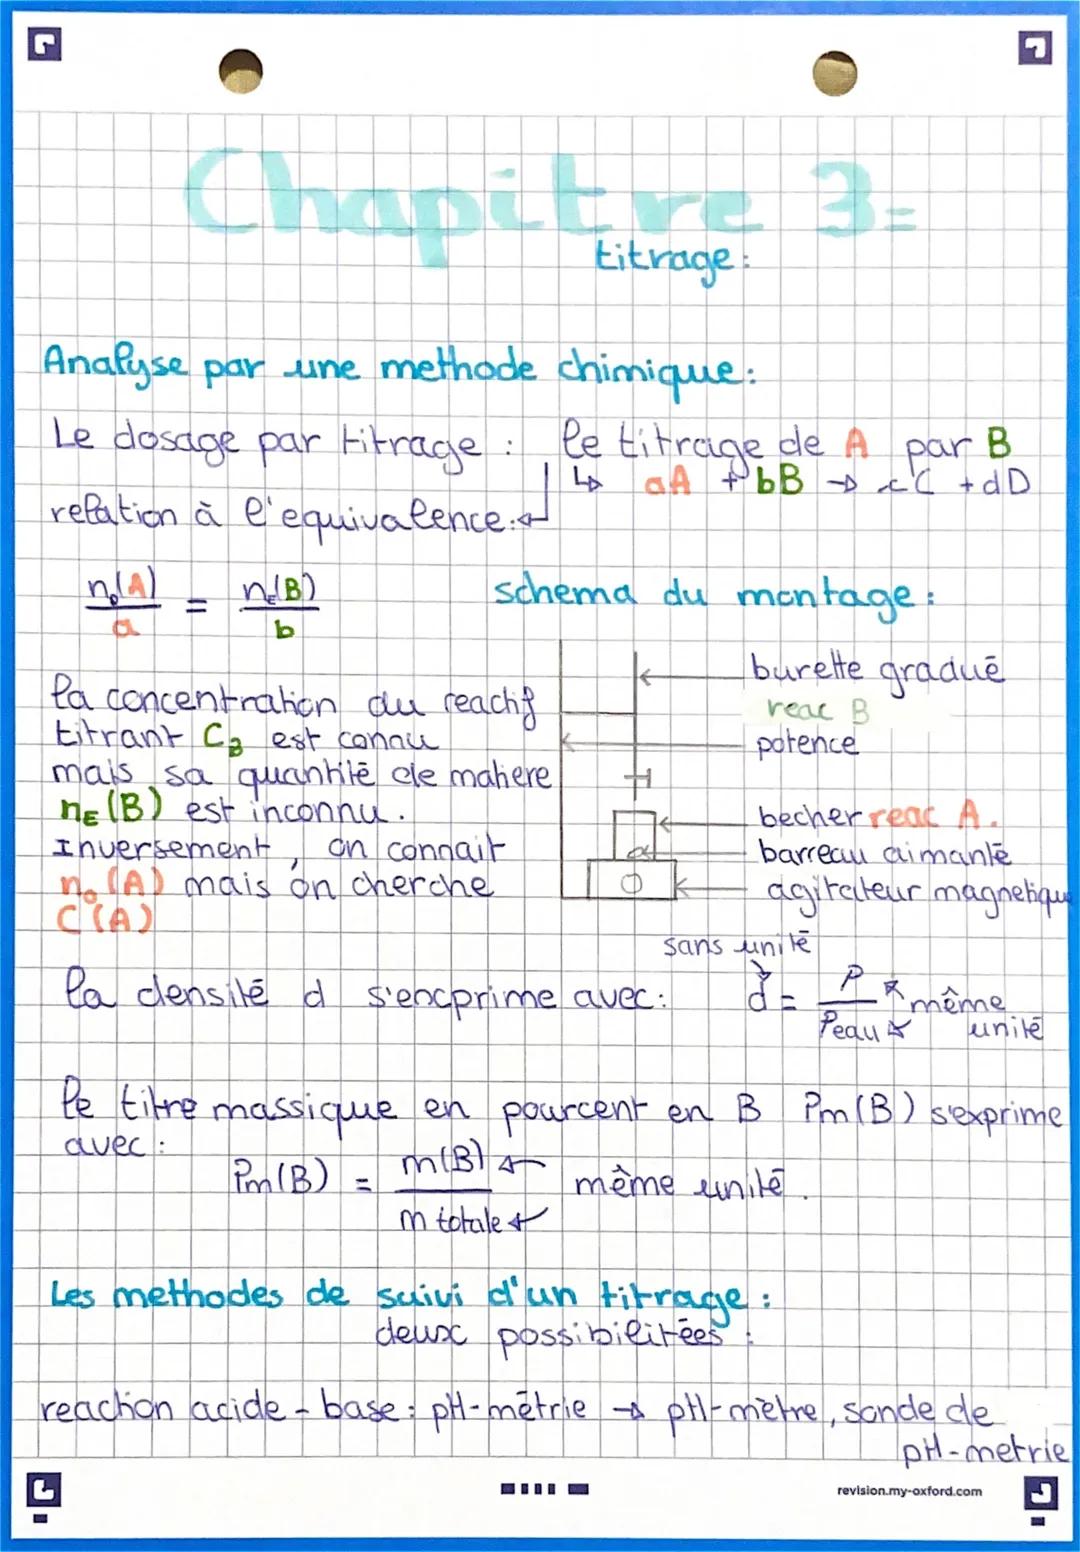 Chapitre 3=
titrage:
Analyse par une methode chimique:
Le dosage par titrage : le titrage de A par B
↳ aA + bB → cC + dD
relation à l'equivalence:
n₀(A)/a = nE(B)/b
schema du montage:
burette gradué
reac B
potence
becher reac A.
barreau aimanté
agitateur magnetique
la concentration du reactif
titrant CB est connu
mais sa quantité de matiere
nE(B) est inconnu.
Inversement, on connait
n₀(A) mais on cherche
C(A)
sans unité
la densité d s'encprime avec: d = ρ/ρeau même unité
le titre massique en pourcent en B Pm(B) s'exprime
avec:
Pm(B) = m(B)/m totale même unité.
Les methodes de suivi d'un titrage:
deux possibilitées :
reaction acide-base: pH-métrie → pH-mètre, sonde de
pH-metrie
revision.my-oxford.com